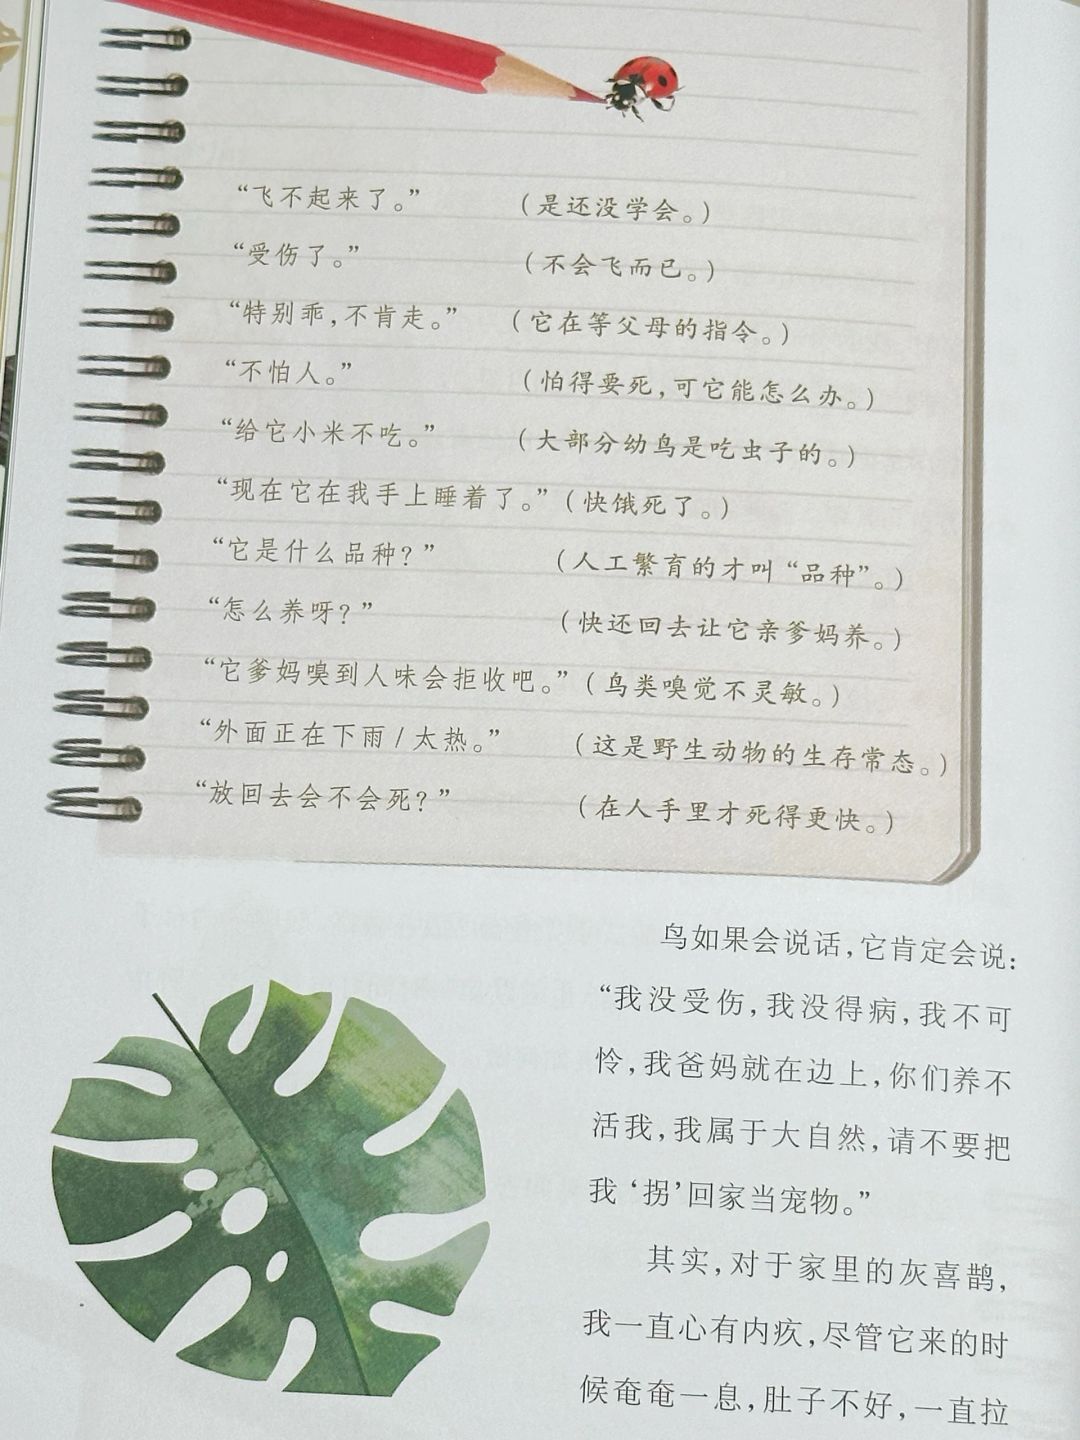 “飞不起来了。” （是还没学会。）
“受伤了。” （不会飞而已。）
“特别乖，不肯走。” （它在等父母的指令。）
“不怕人。” （怕得要死，可它能怎么办。）
“给它小米不吃。” （大部分幼鸟是吃虫子的。）
“现在它在我手上睡着了。”（快饿死了。）
“它是什么品种？” （人工繁育的才叫“品种”。）
“怎么养呀？” （快还回去让它亲爹妈养。）
“它爹妈嗅到人味会拒收吧。”（鸟类嗅觉不灵敏。）
“外面正在下雨/太热。” （这是野生动物的生存常态。）
“放回去会不会死？” （在人手里才死得更快。）
鸟如果会说话，它肯定会说：
“我没受伤，我没得病，我不可
怜，我爸妈就在边上，你们养不
活我，我属于大自然，请不要把
我‘拐’回家当宠物。”
其实，对于家里的灰喜鹊，
我一直心有内疚，尽管它来的时
候奄奄一息，肚子不好，一直拉